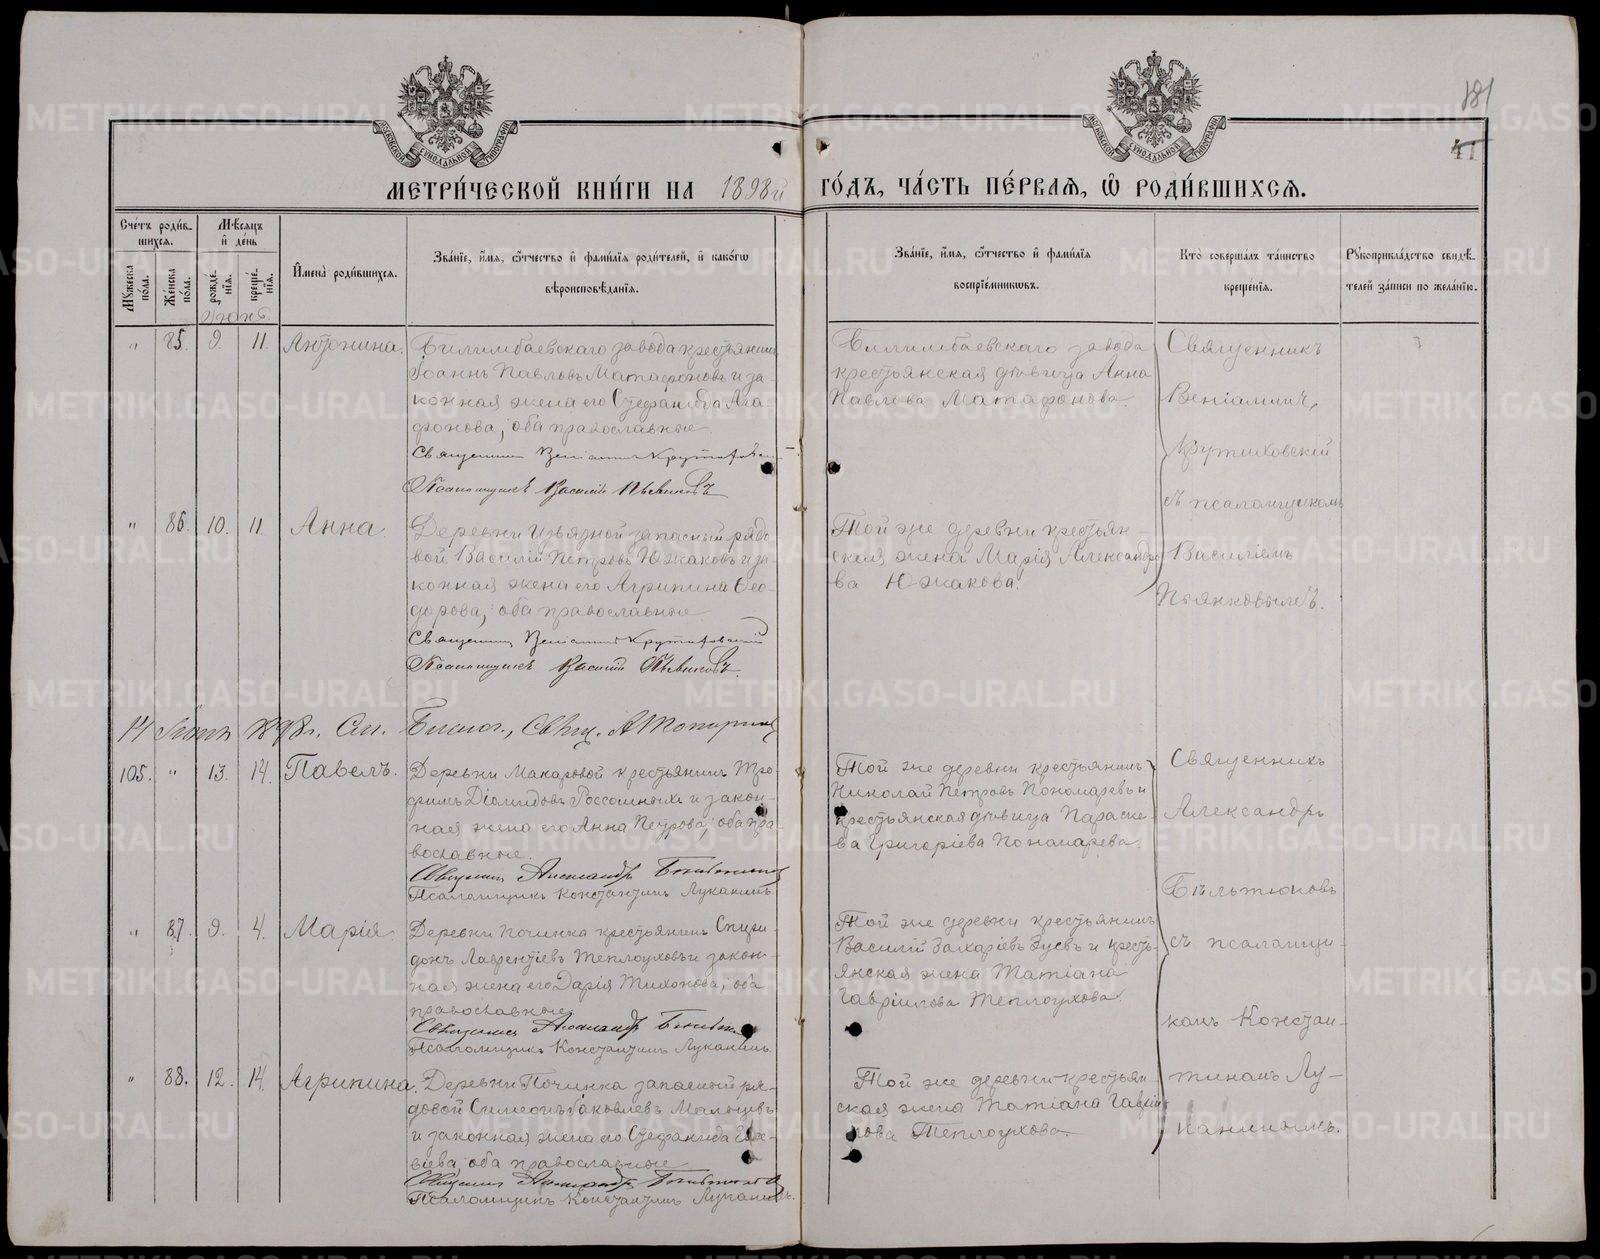 181
41
МОСКОВСКОЙ СѴНОДАЛЬНОЙ ТИПОГРАФІИ
МОСКОВСКОЙ СѴНОДАЛЬНОЙ ТИПОГРАФІИ
МЕТРИ́ЧЕСКОЙ КНИ́ГИ НА 1898й ГО́ДЪ, ЧА́СТЬ ПЕ́РВАѦ, Ѽ РОДИ́ВШИХСѦ.
Сче́тъ роди́в-
шихсѧ.
Мꙋ́жеска по́ла.
Же́нска по́ла.
Мѣ́сѧцъ и҆ де́нь
рожде́нїѧ.
креще́нїѧ.
И҆мена̀ роди́вшихсѧ.
Зва́нїе, и҆́мѧ, ѻ҆́тчество и҆ фами́лїѧ роди́телей, и҆ како́гѡ
вѣроисповѣ́данїѧ.
Зва́нїе, и҆́мѧ, ѻ҆́тчество и҆ фами́лїѧ
воспрїе́мникѡвъ.
Кто̀ соверша́лъ та́инство
креще́нїѧ.
Рꙋкоприкла́дство свидѣ́-
телей за́писи по жела́нїю.
Іюнь.
" 85. 9. 11. Антонина.
Билимбаевскаго завода крестьянинъ
Іоаннъ Павловъ Матафоновъ и за-
конная жена его Стефанида Ага-
фонова, оба православные.
Священникъ Веніаминъ
Псаломщикъ Василій Пьянковъ
Билимбаевскаго завода
крестьянская дѣвица Анна
Павлова Матафонова.
Священникъ
Веніаминъ
Крутиховскій
съ псаломщикомъ
Василіемъ
Пьянковымъ.
" 86. 10. 11. Анна
Деревни Извѣздной запасный рядо-
вой Василій Петровъ Южаковъ и за-
конная жена его Агрипина Ѳео-
дорова, оба православные
Священникъ Веніаминъ Крутиховскій
Псаломщикъ Василій Пьянковъ.
Той же деревни крестьян-
ская жена Марія Александро-
ва Южакова.
14 1898г. Св. А Топорковъ
105. " 13. 14. Павелъ.
Деревни Макаровой крестьянинъ Тро-
фимъ Діомидовъ Россошныхъ и закон-
ная жена его Анна Петрова, оба пра-
вославные.
Священникъ Александръ Бѣльтюковъ
Псаломщикъ Константинъ Луканинъ.
Той же деревни крестьянинъ
Николай Петровъ Пономаревъ и
крестьянская дѣвица Параске-
ва Григоріева Пономарева.
Священникъ
Александръ
Бѣльтюковъ
съ псаломщи-
комъ Констан-
тиномъ Лу-
канинымъ.
" 87. 9. 4. Марія
Деревни Починка крестьянинъ Спири-
донъ Лаврентіевъ Теплоуховъ и закон-
ная жена его Дарія Тихонова, оба
православные
Священникъ Александръ Бѣльтюковъ
Псаломщикъ Константинъ Луканинъ.
Той же деревни крестьянинъ
Василій Захаріевъ Зуевъ и кресть-
янская жена Татіана
Гавріилова Теплоухова.
" 88. 12. 14. Агрипина.
Деревни Починка запасный ря-
довой Симеонъ Яковлевъ Мальцевъ
и законная жена его Стефанида
оба православные
Священникъ Александръ Бѣльтюковъ
Псаломщикъ Константинъ Луканинъ.
Той же деревни крестьян-
ская жена Татіана Гаврі-
лова Теплоухова.
METRIKI.GASO-URAL.RU